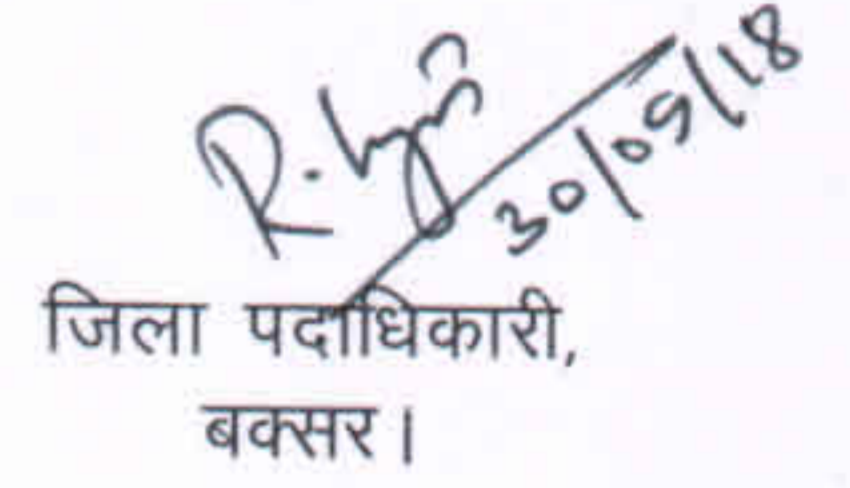 30/05/18
जिला पदाधिकारी,
बक्सर।